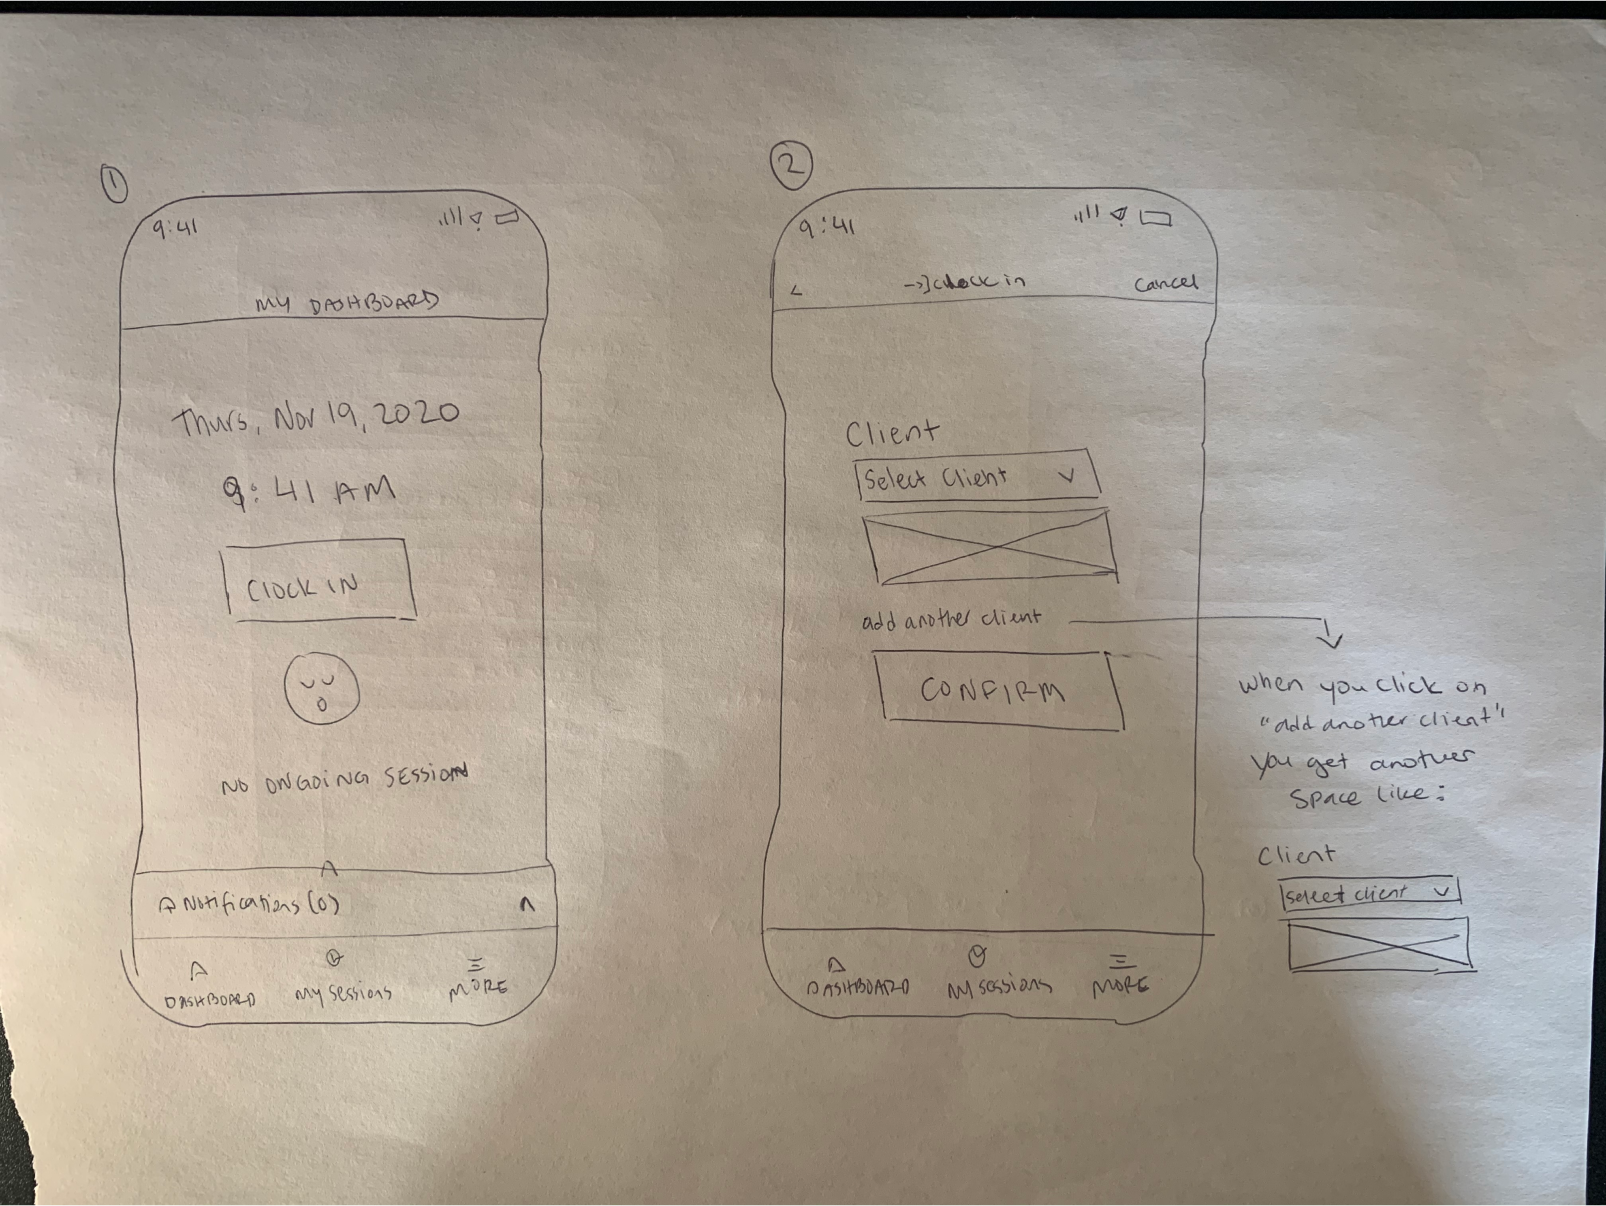 1
9:41
MY DASHBOARD
Thurs, Nov 19, 2020
9:41 AM
CLOCK IN
NO ONGOING SESSION
Notifications (0)
DASHBOARD
My sessions
MORE
2
9:41
< →] clock in Cancel
Client
Select Client
add another client
CONFIRM
DASHBOARD
My sessions
MORE
when you click on
"add another client"
you get another
space like:
Client
select client